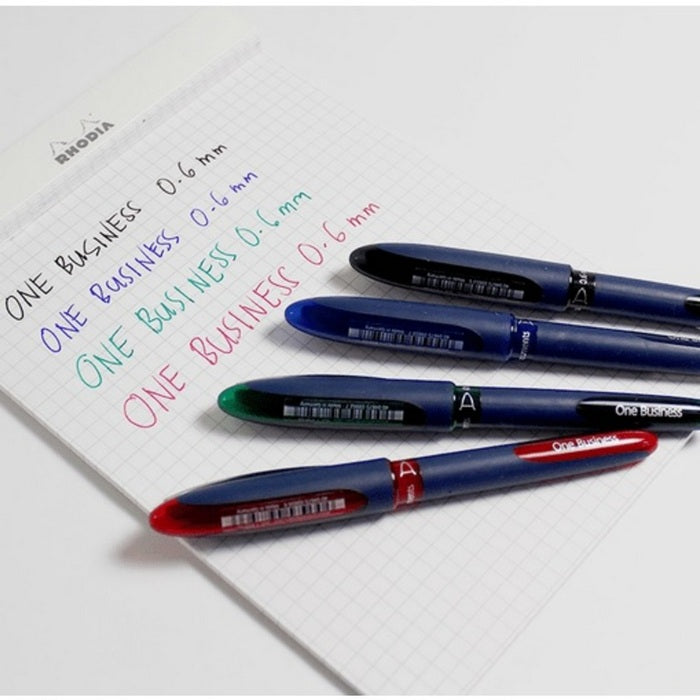 RHODIA
ONE BUSINESS 0.6 mm
ONE BUSINESS 0.6 mm
ONE BUSINESS 0.6 mm
ONE BUSINESS 0.6 mm
One Business
One Business